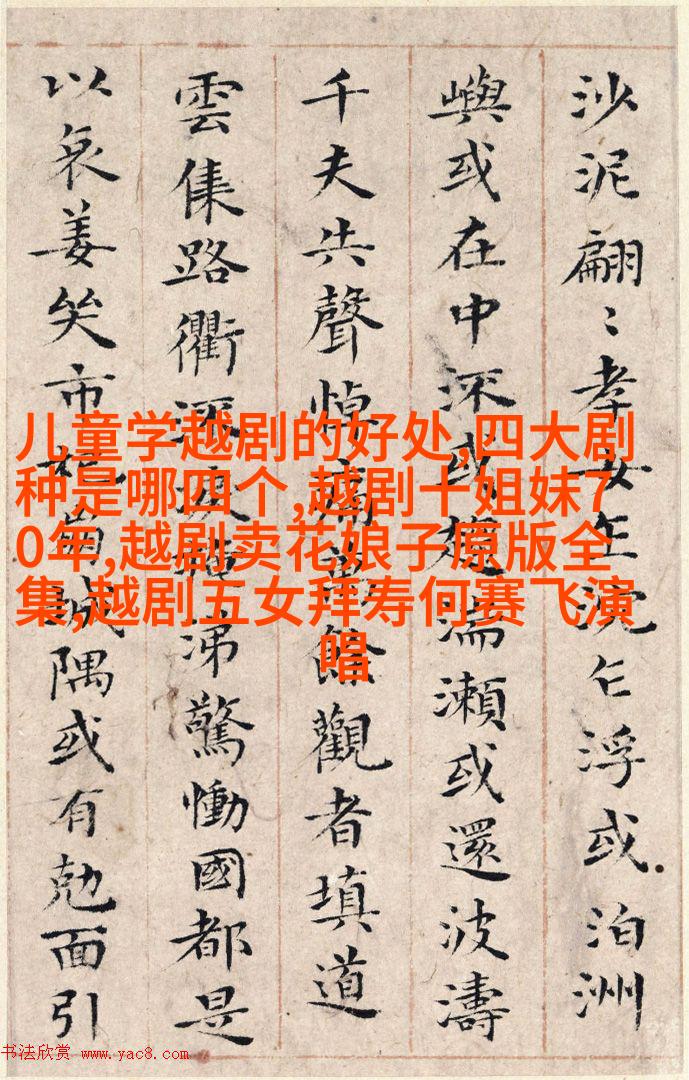 沙泥翩〻孝女乍沉乍浮或泊洲
嶼或在中流或趨湍瀨或還波濤
千夫失聲悼痛萬餘觀者填道
雲集路衢流淚掩涕驚慟國都是
以哀姜哭市杞崩城隅或有尅面引
儿童学越剧的好处,四大剧
种是哪四个,越剧十姐妹7
0年,越剧卖花娘子原版全
集,越剧五女拜寿何赛飞演
唱
书法欣赏 www.yac8.com